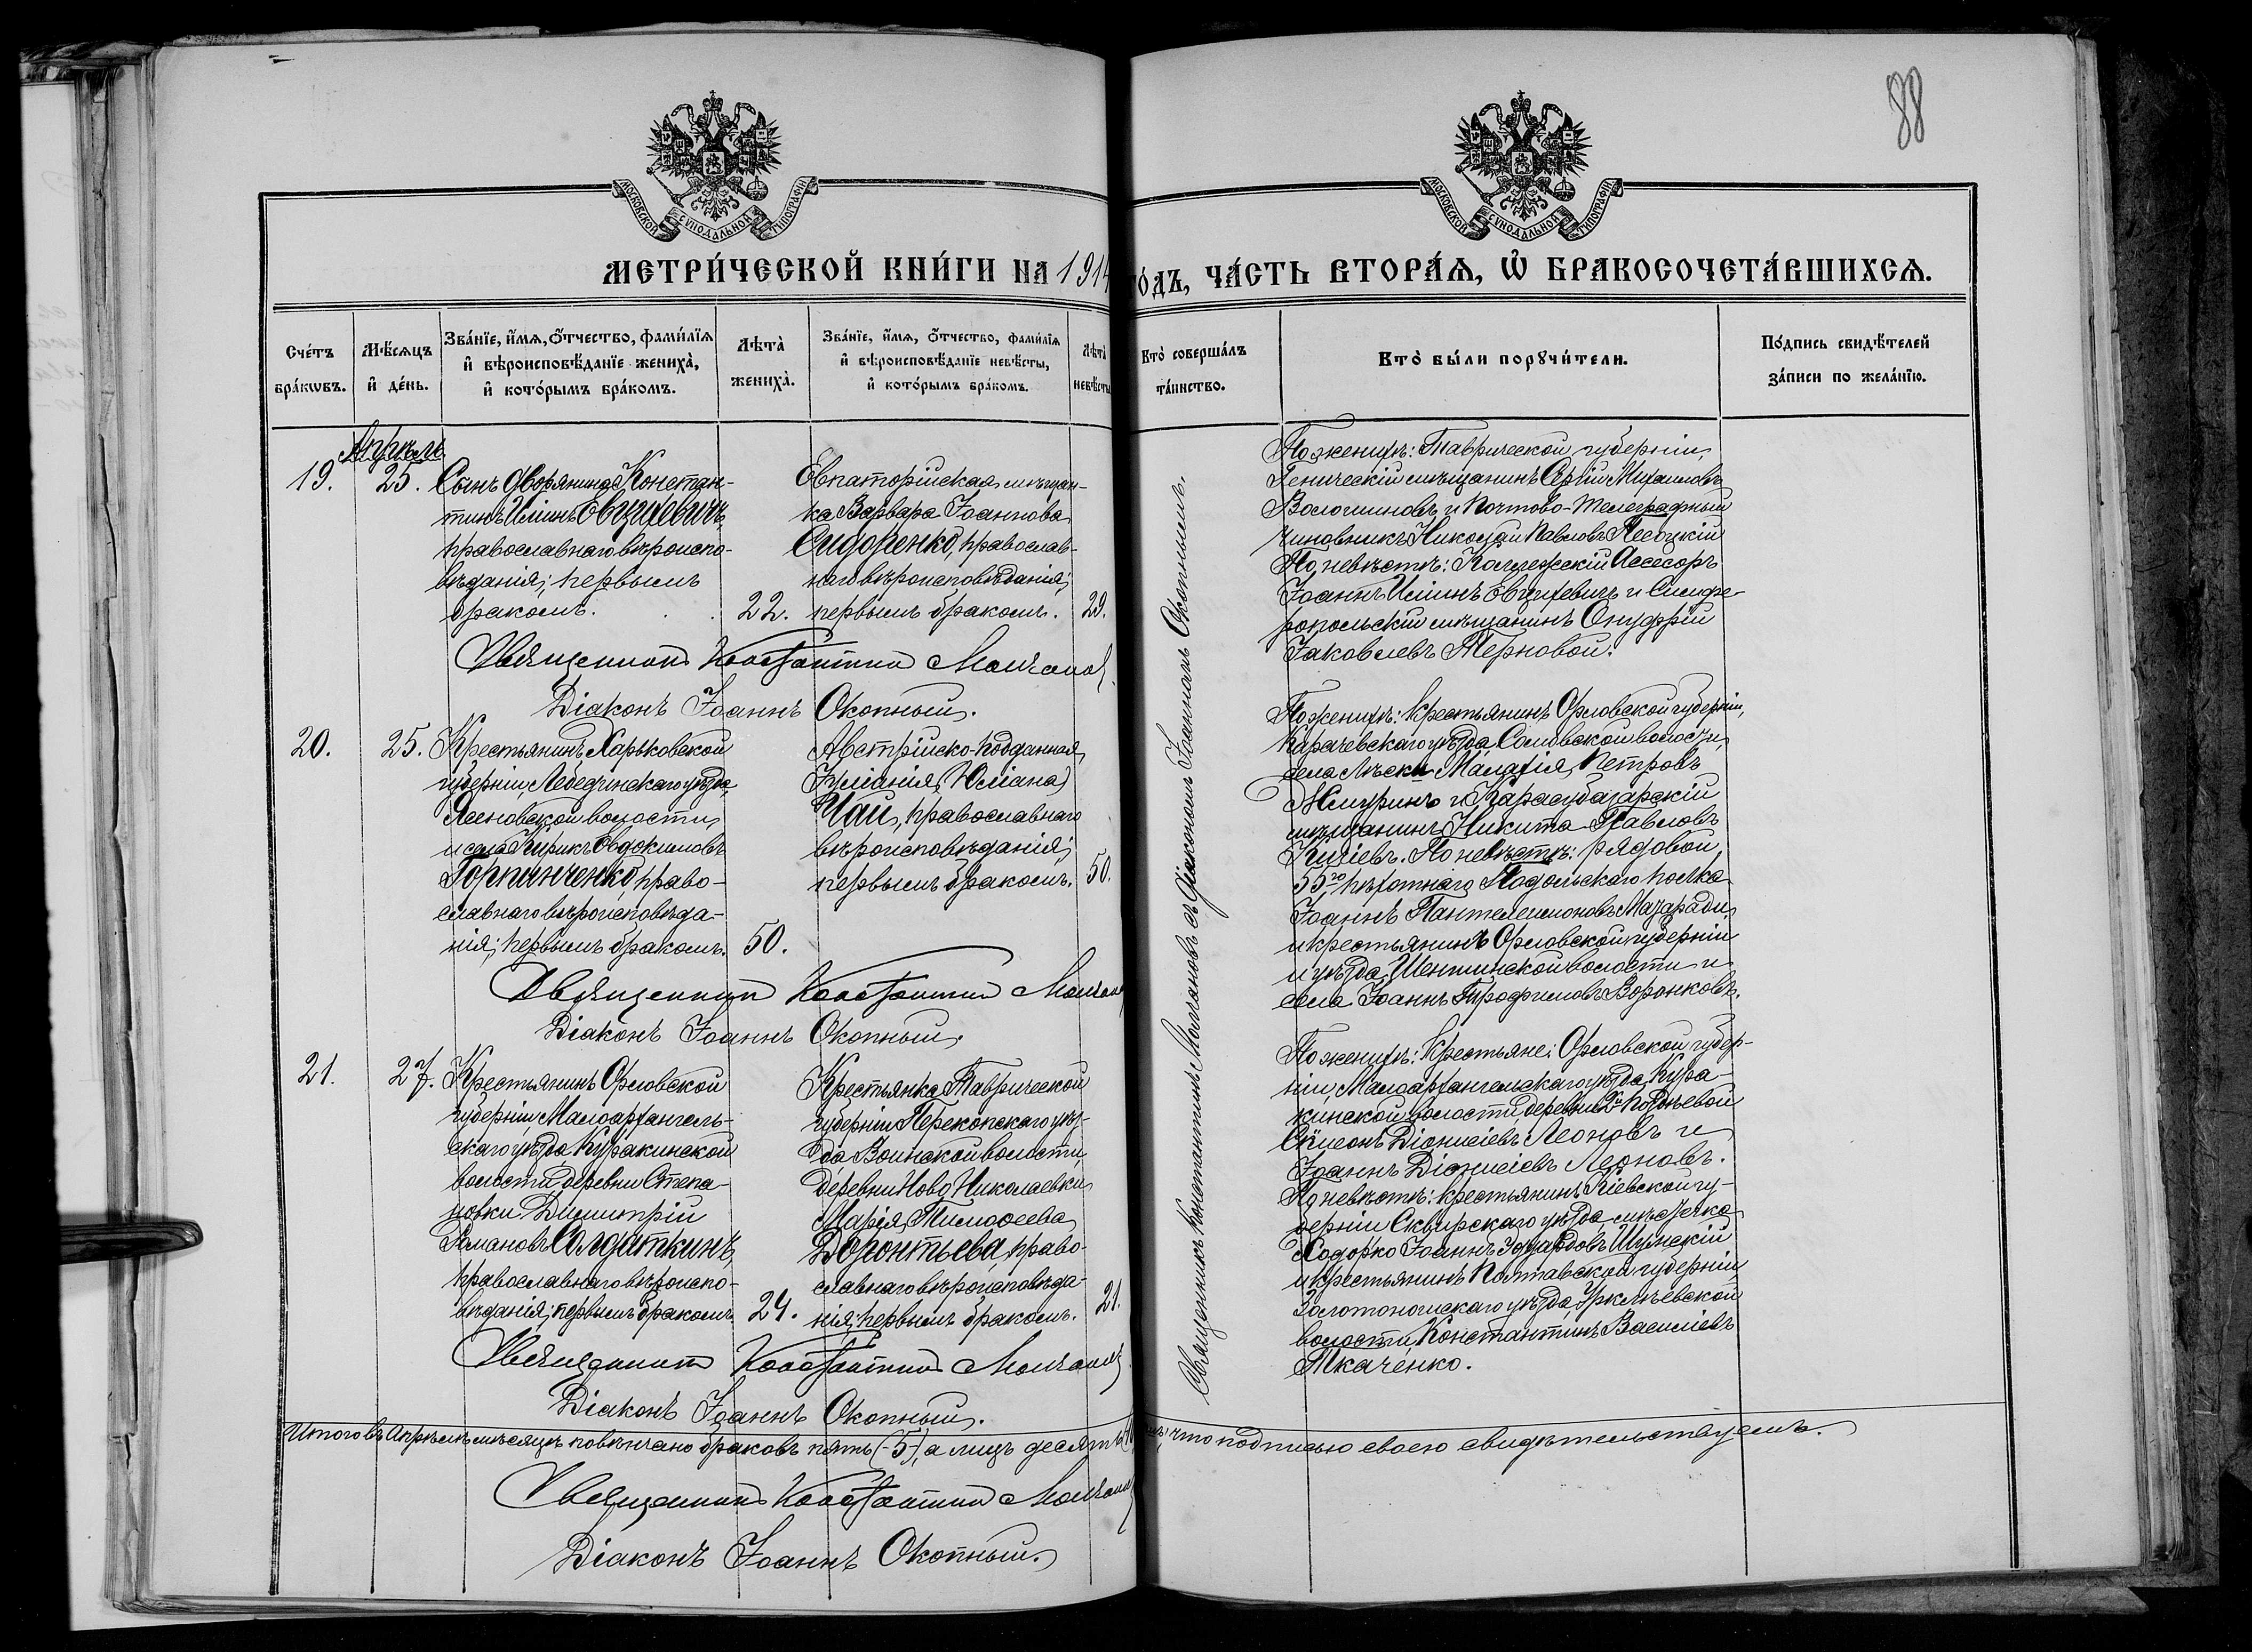 88
МОСКОВСКОЙ СѴНОДАЛЬНОЙ ТИПОГРАФІИ
МОСКОВСКОЙ СѴНОДАЛЬНОЙ ТИПОГРАФІИ
МЕТРИ́ЧЕСКОЙ КНИ́ГИ НА 1914 ГО́ДЪ, ЧА́СТЬ ВТОРА́Ѧ, Ѽ БРАКОСОЧЕТА́ВШИХСѦ.
Сче́тъ бра́кѡвъ.
Мѣ́сѧцъ и҆ де́нь.
Зва́нїе, и҆́мѧ, ѻ҆́тчество, фами́лїѧ
и҆ вѣроисповѣ́данїе жениха̀,
и҆ кото́рымъ бра́комъ.
Лѣта̀ жениха̀.
Зва́нїе, и҆́мѧ, ѻ҆́тчество, фами́лїѧ
и҆ вѣроисповѣ́данїе невѣ́сты,
и҆ кото́рымъ бра́комъ.
Лѣта̀ невѣ́сты
Кто̀ соверша́лъ та́инство.
Кто̀ бы́ли порꙋчи́тели.
По́дпись свидѣ́телей
за́писи по жела́нїю.
Апрѣль
19.
25.
Сынъ дворянина Констан-
тинъ Илiинъ Евзцевичъ,
православнаго вѣроиспо-
вѣданія; первымъ
бракомъ.
22.
Евпаторійская мѣщан-
ка Варвара Іоаннова
Сидоренко, православ-
наго вѣроисповѣданія;
первымъ бракомъ.
29.
По женихѣ: Таврической губерніи,
Геническій мѣщанинъ Сергій Михаиловъ
Вологиновъ и Почтово-Телеграфный
чиновникъ Николай Павловъ Лесоцкій
По невѣстѣ: Коллежскій Ассесоръ
Іоаннъ и Симфе-
ропольскій мѣщанинъ Онуфрій
Іаковлевъ Терновой.
Священникъ Константинъ Молчановъ
Діаконъ Іоаннъ Окопный.
20.
25.
Крестьянинъ Харьковской
губерніи, Лебединскаго уѣзда,
Ясеновской волости,
и села Кирикъ Евдокимовъ
Горпинченко, право-
славнаго вѣроисповѣда-
нія; первымъ бракомъ.
50.
Австрійско-подданная
Іуліанія (Юліана)
Чай, православнаго
вѣроисповѣданія;
первымъ бракомъ.
50.
По женихѣ: Крестьянинъ Орловской губерніи,
Карачевскаго уѣзда, волости,
села Лѣски Малахія Петровъ
Жмуринъ и Карасубазарскій
мѣщанинъ Никита Павловъ
Кичіевъ. По невѣстѣ: рядовой,
55го пѣхотнаго Подольскаго полка
Іоаннъ Пантелеимоновъ Мазаради,
и крестьянинъ Орловской губерніи
и уѣзда, Шеншинской волости и
села Іоаннъ Трофимовъ Воронковъ.
Священникъ Константинъ Молчановъ
Діаконъ Іоаннъ Окопный.
21.
27.
Крестьянинъ Орловской
губерніи, Малоархангель-
скаго уѣзда, Куракинской
волости, деревни Степа-
новки Димитрій
Романовъ Солдаткинъ,
православнаго вѣроиспо-
вѣданія; первымъ бракомъ.
24.
Крестьянка Таврической
губерніи Перекопскаго уѣз-
да Воинской волости
деревни Ново Николаевки
Марія Тимоѳеева
Дорофтьева, право-
славнаго вѣроисповѣда-
нія; первымъ бракомъ.
21.
По женихѣ: Крестьяне: Орловской губер-
ніи, Малоархангельскаго уѣзда, Кура-
кинской волости, деревни
Сѵмеонъ Діонисіевъ Леоновъ и
Іоаннъ Діонисіевъ Леоновъ.
По невѣстѣ: крестьянинъ Кіевской гу-
берніи Сквирскаго уѣзда мѣстечка
Ходорко Іоаннъ Эдуардовъ Шумскій
и крестьянинъ Полтавской губерніи
Золотоношскаго уѣзда, Ирклѣевской
волости, Константинъ Василіевъ
Ткаченко.
Священникъ Константинъ Молчановъ
Діаконъ Іоаннъ Окопный.
Священникъ Константинъ Молчановъ съ Діакономъ Іоанномъ Окопнымъ.
Итого въ Апрѣлѣ мѣсяцѣ повѣнчано браковъ пять (-5), а лицъ десять что подписью своею свидѣтельствуемъ.
Священникъ Константинъ Молчановъ
Діаконъ Іоаннъ Окопный.